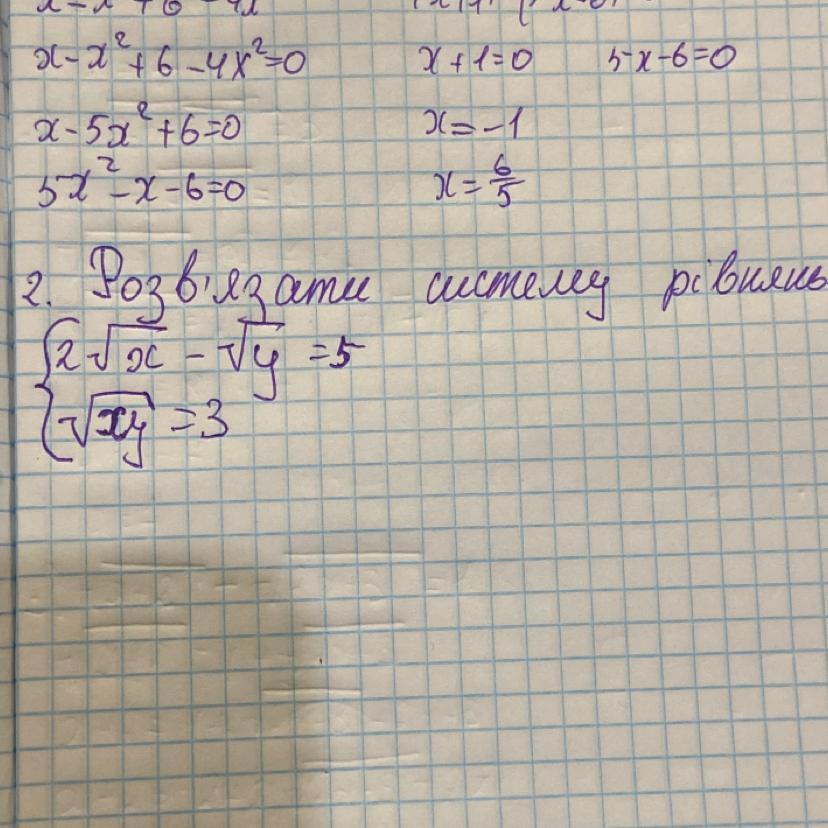 x-x²+6-4x²=0 x+1=0 5x-6=0
x-5x²+6=0 x=-1
5x²-x-6=0 x=6/5
2. Розв'язати систему рівнянь
{2√x - √y = 5
{√xy = 3